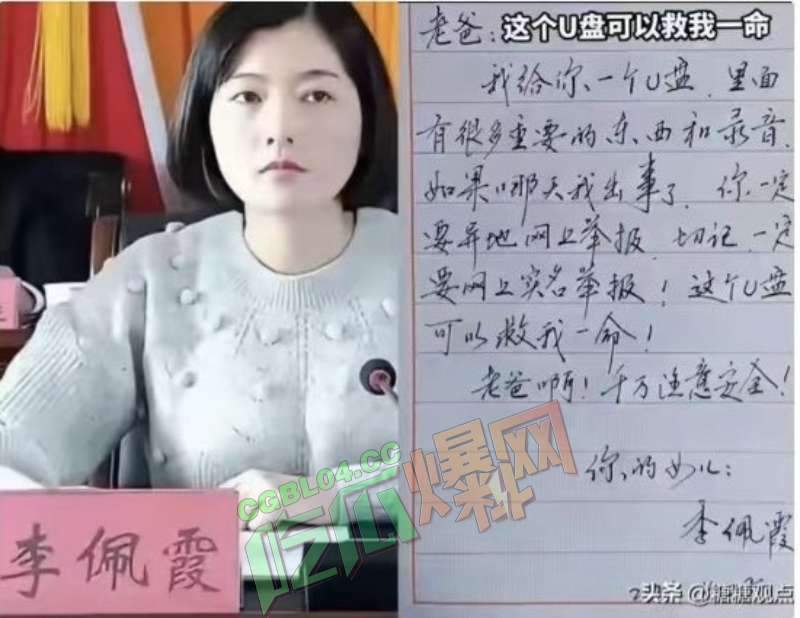 李佩霞
CGBL04.CC
吃瓜爆料网
这个U盘可以救我一命
老爸:
我给你一个U盘,里面
有很多重要的东西和录音,
如果哪天我出事了,你一定
要异地网上举报,切记,一定
要网上实名举报!这个U盘
可以救我一命!
老爸啊!千万注意安全!
你的女儿:
李佩霞
头条 @糖糖观点